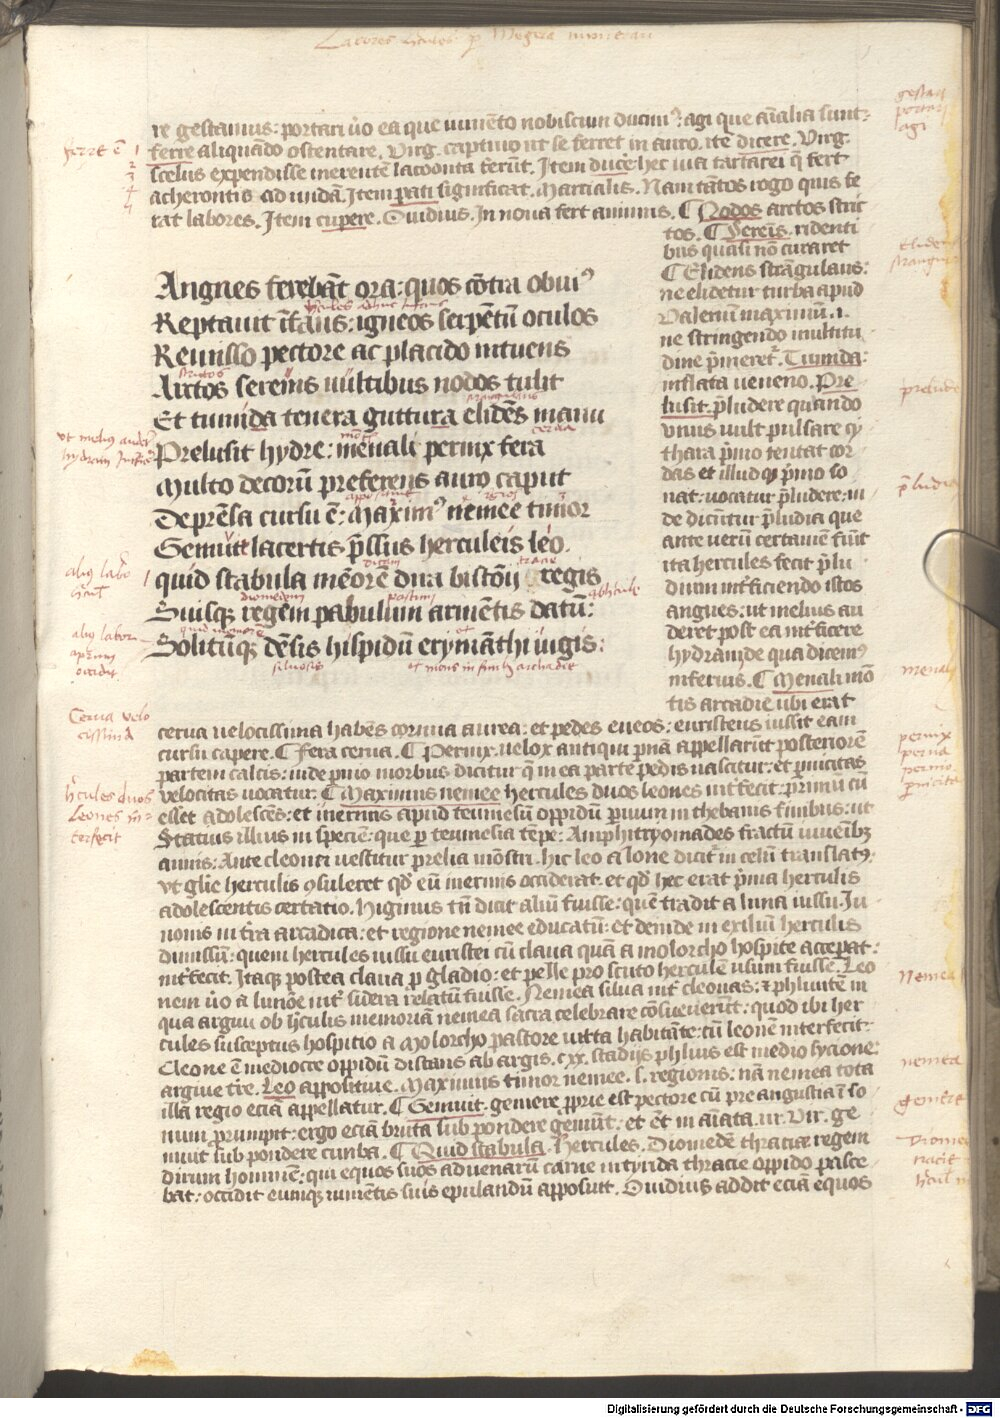 Labores herculis per Megera numerau
re gestamus: portari u̇o ea que iumēto nobiscum ducimꝰ: agi que aīalia sunt
ferre aliquādo ostentare. Virg. captiuo ut se ferret in auro. itē dicere. Virg.
scelus expendisse merentē lacoonta ferūt. Item duce: hec uia tartarei q̄ fert
acherontis ad undā. Item pati significat. Martialis. Nam tātos rogo quis fe
rat labores. Item cupere. Ouidius. In noua fert animus. ¶ Nodos arctos stric
tos. ¶ Serenis. ridenti
bus quasi nō curaret
¶ Elidens strāgulans:
ne elidetur turba apud
Valeriū maximū. i.
ne stringendo multitu
dine p̄meret᷑. Tumida:
inflata ueneno. Pre
lusit. p̄ludere quando
unus uult pulsare cy
thara p̄mo tentat cor
das et illud qꝫ p̄mo so
nat: uocatur p̄ludere: in
de dicūtur p̄ludia que
ante uerū certamē fiūt
ita hercules fecit p̄lu
dium īterficiendo istos
angues: ut melius au
deret post ea īterficere
hydrā: de qua dicemꝰ
inferius. ¶ Menali mō
tis arcadie ubi erat
Angues ferebāt ora: quos cōtra obuiꝰ
Reptauit īfans: igneos serpētū oculos
Remisso pectore ac placido intuens
Arctos serenis uultibus nodos tulit
Et tumida tenera guttura elidēs manu
Prelusit hydre: menali pernix fera
Multo decorū preferens auro caput
Deprēsa cursu ē: Maximꝰ nemee timor
Gemuit lacertis p̄ssus herculeis leo.
quid stabula memorē dira bistonii regis
Suisqꝫ regem pabulum armētis datū:
Solitūqꝫ dēsis hispidū erymāthi iugis:
cerua uelocissima habēs cornua aurea: et pedes eneos: euristeus iussit eam
cursu capere. ¶ Fera cerua. ¶ Pernix. uelox antiqui pernā appellarūt posteriorē
partem calcis: inde pernio morbus dicitur q̄ in ea parte pedis nascitur: et pernicitas
velocitas uocatur. ¶ Maximus nemee hercules duos leones īterfecit: primū cū
esset adolescēs: et inermis apud teumesiū oppidū paruum in thebanis finibus: ut
Statius illius in speciē: que per teumesia tēpe: Amphitryoniades fractū iuuenibꝫ
annis: Ante cleonei uestitur prelia mōstri. hic leo a Ione dicit᷑ in celū translatꝰ.
vt glīe herculis cōsuleret qđ eū inermis occiderat. et qđ hec erat p̄ma herculis
adolescentis certatio. Higinius tn̄ dicit aliū fuisse: quē tradit a luna iussu Iu
nonis in tr̄a arcadica: et regione nemee educatū: et deinde in exiliū herculis
dimissū: quem hercules iussu euristei cū claua quā a molorcho hospite acceperat:
īterfecit. Itaqꝫ postea claua pro gladio: et pelle pro scuto herculē usum fuisse. Leo
nem u̇o a Iunōe īter sidera relatū fuisse. Nemea silua īter cleonas: et phliuntē in
qua argiui ob herculis memoriā nemea sacra celebrare cōsueuerūt: quod ibi her
cules susceptus hospitio a Molorcho pastore iuxta habitāte: cū leonē interfecit:
Cleone ē mediocre oppidū distans ab argis. cxx. stadijs phlius est medio sycione
argiue tr̄e. Leo appositiue. Maximus timor nemee. s. regionis: nā nemea tota
illa regio eciā appellatur. ¶ Gemuit. gemere p̄prie est pectore cū pre angustia ī so
num prumpit: ergo eciā bruta sub pondere gemūt: et ēt in aīata. ut. Vir. ge
muit sub pondere cimba. ¶ Quid stabula. Hercules. Diomedē thraciæ regem
dirum hominē: qui equos suos aduenarū carne in tynda thracie oppido pasce
bat: occidit eumqꝫ iumētis suis epulandū apposuit. Ouidius addit eciā equos
ferre ē
1
2
3
4
hercules adhuc infans
strictos
strangulans
cerua
montis
appositiue
diomedem
pastum
siluosis
et mons in finibꝫ archadie
ut melius auderet
alius labor
hercul
alius labor
aprum
occidit
Cerua velo
cissima
hercules duos
Leones in=
terfecit
gestari
portari
agi
elidens
strangulans
preludo
p̄ludia
menali
pernix
perna
pernio
p̄nicitas
Nemea
nemea
gemere
Diomed
Digitalisierung gefördert durch die Deutsche Forschungsgemeinschaft - DFG